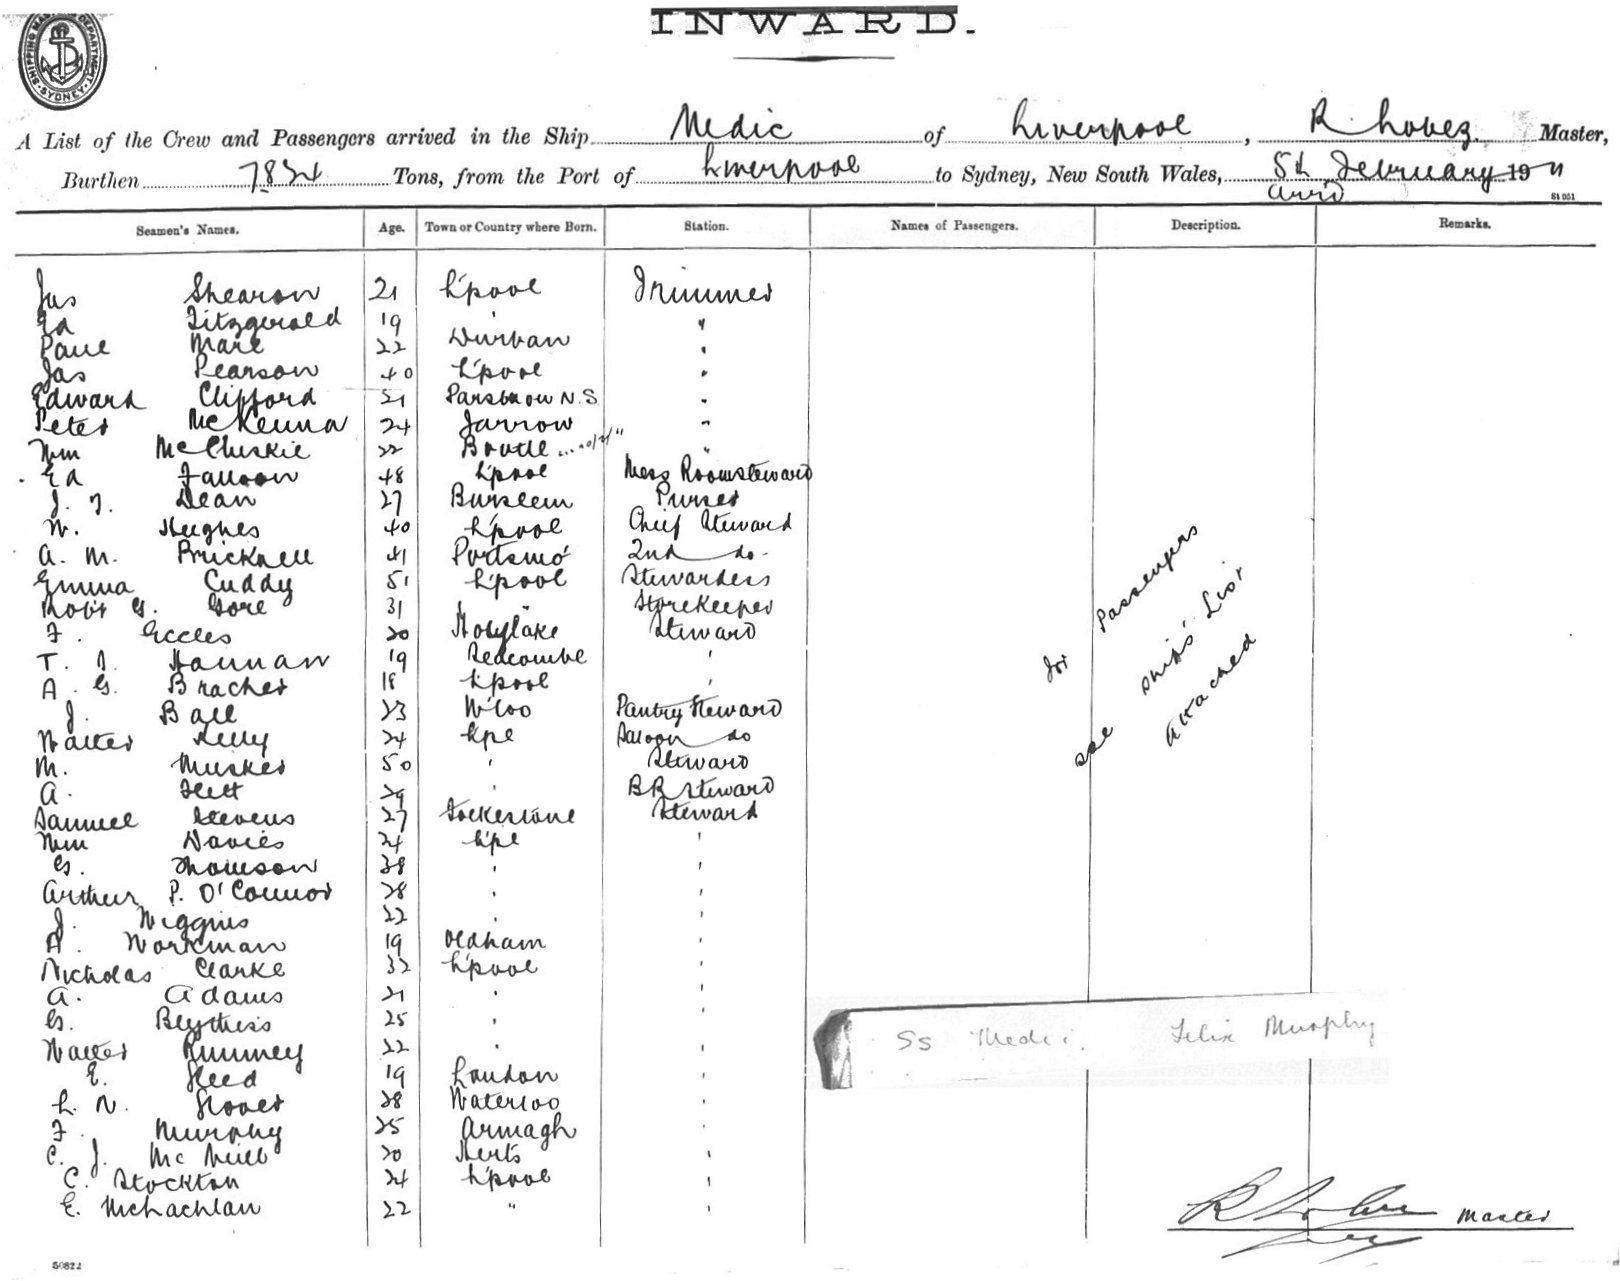 SHIPPING MASTERS DEPARTMENT SYDNEY
INWARD.
A List of the Crew and Passengers arrived in the Ship Medic of Liverpool, R. Master,
Burthen 7834 Tons, from the Port of Liverpool to Sydney, New South Wales, 8th February 1911
arr'd
St 051
Seamen's Names. Age. Town or Country where Born. Station. Names of Passengers. Description. Remarks.
Jas Shearon 21 L'pool Trimmer
Ed Fitzgerald 19 ' "
Paul Mare 22 Durban "
Jas Pearson 40 L'pool "
Edward Clifford 21 N.S. "
Peter McKenna 24 Jarrow "
Wm McCluskie 22 Bootle "
Ed Falloon 48 L'pool Mess Roomsteward
J. F. Dean 27 Burslem Purser
W. Hughes 40 L'pool Chief Steward
A. M. Pricknell 41 Portsmo' 2nd do-
Emma Cuddy 51 L'pool Stewardess
Robt G. Gore 31 " Storekeeper
F. Eccles 20 Hoylake Steward
T. J. Hannan 19 Seacombe '
A. G. Bracher 18 L'pool '
J. Ball 23 W'loo Pantry Steward
Walter Kelly 24 Lpl Saloon do
M. Musker 50 ' Steward
A. 29 ' BR Steward
Samuel Stevens 27 Steward
Wm Davies 24 L'pl '
G. Thomson 38 ' '
Arthur P. O'Connor 28 ' '
J. Wiggins 22 ' '
A. Workman 19 Oldham '
Nicholas Clarke 32 L'pool '
A. Adams 21 ' '
G. 25 ' '
Walter Rimmey 22 ' '
E. 19 London '
L. W. 28 Waterloo '
F. Murphy 25 Armagh '
C. J. McNeill 20 Herts '
C. Stockton 24 L'pool '
E. McLachlan 22 " '
for Passengers
see Ships' List
attached
SS Medic. Felix Murphy
Master
50822